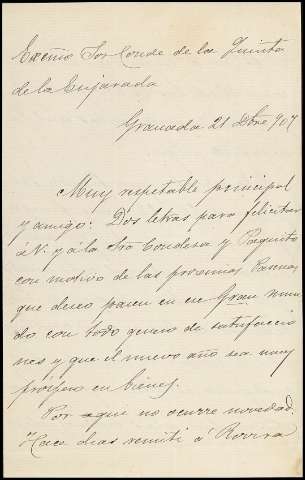 Excmo Sor Conde de las Quinta
de la Enjarada
Granada 21 Dbre 907
Muy respetable principal
y amigo: Dos letras para felicitar
á V. y á la Sra Condesa y Paquito
con motivo de las proximas Pascuas
que deseo pasen en ese Gran mun
do con todo genero de satisfaccio
nes y que el nuevo año sea muy
prospero en bienes.
Por aqui no ocurre novedad.
Hace dias remiti á Rovira